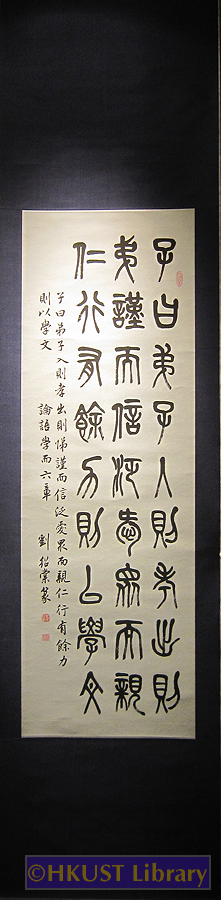 子曰弟子入則孝出則
弟謹而信泛愛眾而親
仁行有餘力則以學文
子曰弟子入則孝出則悌謹而信泛愛眾而親仁行有餘力
則以學文 論語學而六章 劉紹棠篆
©HKUST Library